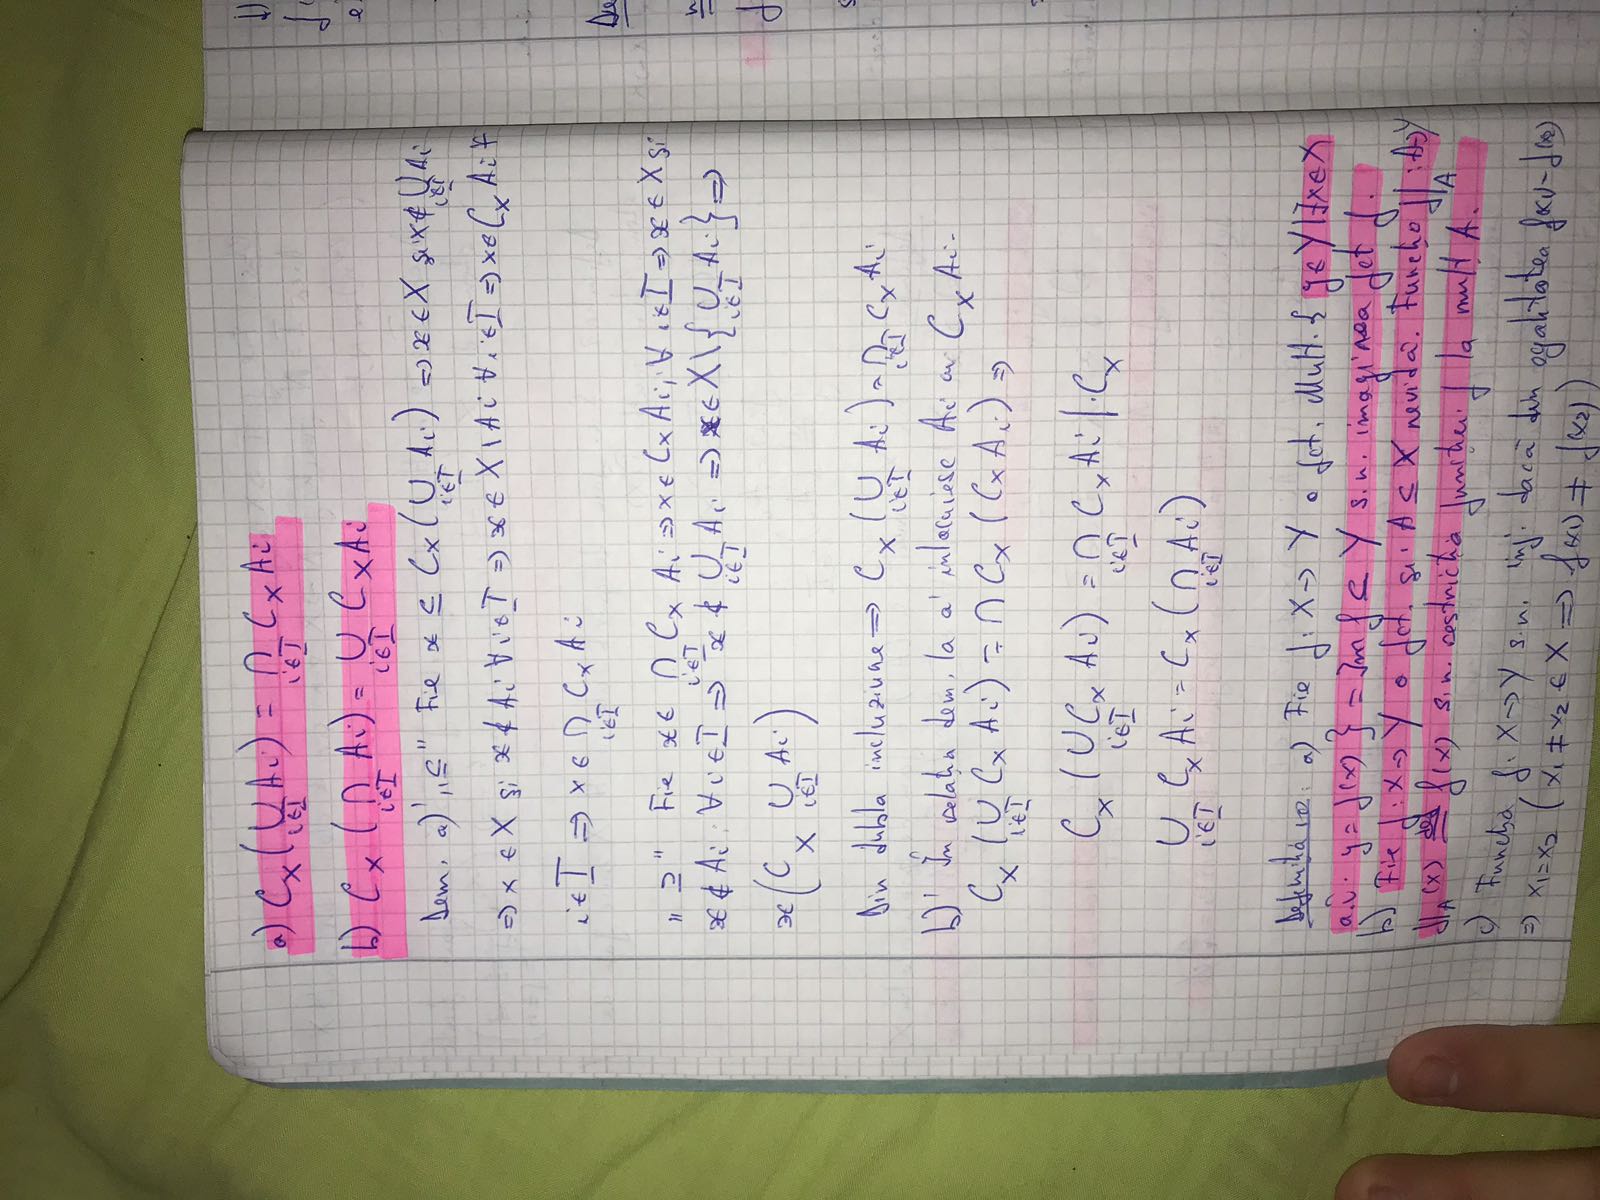 a) C_X(⋃_{i∈I} A_i) = ⋂_{i∈I} C_X A_i
b) C_X(⋂_{i∈I} A_i) = ⋃_{i∈I} C_X A_i
Dem. a) "⊆" Fie x ⊆ C_X(⋃_{i∈I} A_i) ⇒ x ∈ X și x ∉ ⋃_{i∈I} A_i
⇒ x ∈ X și x ∉ A_i ∀ i∈I ⇒ x ∈ X \ A_i ∀ i∈I ⇒ x ∈ C_X A_i ∀
i∈I ⇒ x ∈ ⋂_{i∈I} C_X A_i
"⊇" Fie x ∈ ⋂_{i∈I} C_X A_i ⇒ x ∈ C_X A_i, ∀ i∈I ⇒ x ∈ X și
x ∉ A_i, ∀ i∈I ⇒ x ∉ ⋃_{i∈I} A_i ⇒ x ∈ X \ {⋃_{i∈I} A_i} ⇒
x (C_X ⋃_{i∈I} A_i)
Din dubla incluziune ⇒ C_X(⋃_{i∈I} A_i) = ⋂_{i∈I} C_X A_i
b) În relația dem. la a) înlocuiesc A_i cu C_X A_i.
C_X(⋃_{i∈I} C_X A_i) = ⋂ C_X(C_X A_i) ⇒
C_X(⋃_{i∈I} C_X A_i) = ⋂_{i∈I} C_X A_i | · C_X
⋃_{i∈I} C_X A_i = C_X(⋂_{i∈I} A_i)
Definiție: a) Fie f: X → Y o fct. Mult. {y ∈ Y | ∃ x ∈ X
a.î. y = f(x)} = Im f ⊆ Y s.n. imaginea fct f.
b) Fie f: X → Y o fct. și A ⊆ X nevidă. Funcția f|_A : A → Y
f|_A (x) def= f(x) s.n. restricția funcției f la mult A.
c) Funcția f: X → Y s.n. inj. dacă din egalitatea f(x_1) = f(x_2)
⇒ x_1 = x_2 (x_1 ≠ x_2 ∈ X ⇒ f(x_1) ≠ f(x_2))